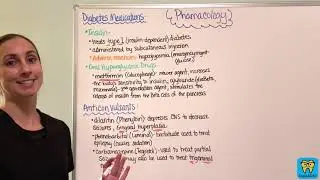 Diabetes Medications:
{ Pharmacology }
• Insulin
• treats type I (insulin dependent) diabetes
• administered by subcutaneous injection
• Adverse reaction: hypoglycemia
• Oral Hypoglycemic Drugs
• metformin (Glucophage):
the body's sensitivity to insulin,
release of insulin from the beta cells of the pancreas
Anticonvulsants
• dilantin (Phenytoin): depresses CNS to decrease
seizures, gingival hyperplasia
• phenobarbital (Luminal): barbiturate used to treat
epilepsy (causes sedation)
• carbamazepine (Tegretol): used to treat partial
may also be used to treat trigeminal